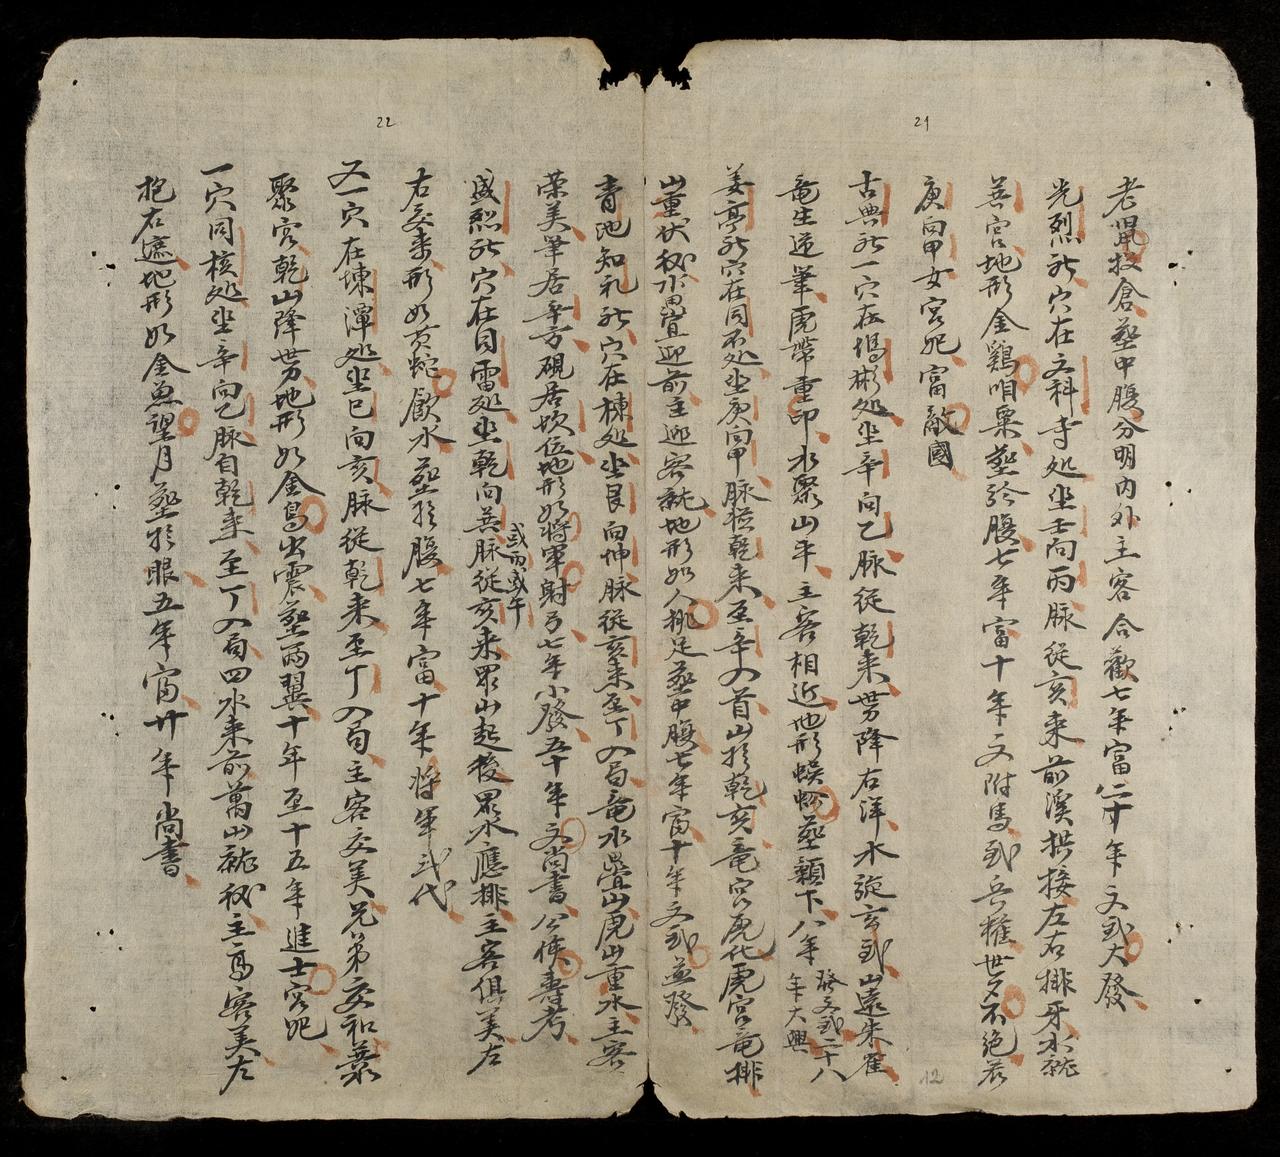 21
老鼠投倉葬中腹分明內外主客合歡七年富二十年文武大發
光烈社穴在文科寺処坐壬向丙脉従亥来前溪拱接左右排牙水
善宮地形金鷄咱粟葬於腹七年富十年文附馬武兵權世久不絶
庚向甲女宮妃富敵國
古典社一穴在
彬処坐辛向乙脉従乾来
降右洋水
玄武山遠朱雀
竜生逆筆虎帶重印水聚山平主客相近地形蜈蚣葬顙下八年
發文武二十八
年大興
姜亭社穴在同不処坐庚向甲脉従乾来至辛入首山於乾亥竜宮虎化虎宮竜排
山重伏秘水疊宜迎前主迎客
地形如人桃足葬中腹七年富十年文武並發
22
青池知礼社穴在棟処坐艮向坤脉従亥来至丁入局竜水疊山虎山重水主客
榮美筆居辛方硯居坎位地形如將軍射弓七年小發五十年文尚書公侯壽考
盛烈社穴在同雷処坐乾向巽脉従亥来眾山起後眾水應排主客俱美左
或丙或午
右交来形如黄蛇飲水葬於腹七年富十年將軍弍代
又一穴在
潭処坐巳向亥脉従乾来至丁入局主客交美兄弟交和
聚宮乾山降
地形如金烏出震葬兩翼十年至十五年進士宮妃
一穴同核処坐辛向乙脉自乾来至丁入局四水来前萬山
秘主高客美左
抱右遮地形如金魚望月葬於眼五年富廿年尚書
12